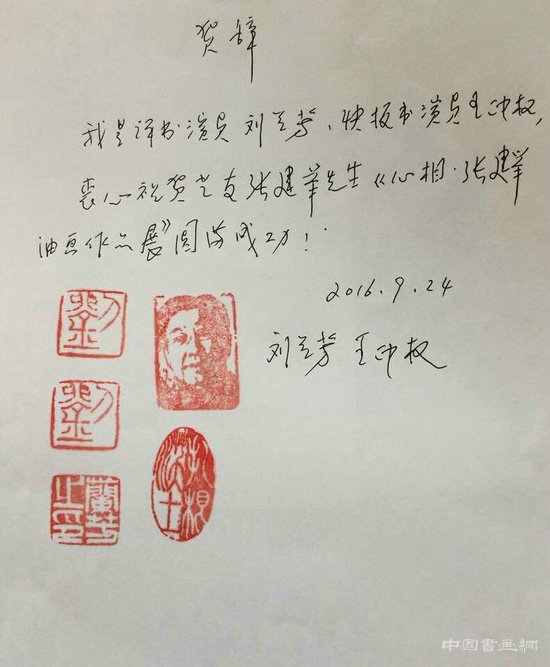 贺辞
我是评书演员刘兰芳、快板书演员王印权,
衷心祝贺艺友张建华先生《心相·张建华
油画作品展》圆满成功!
2016.9.24
刘兰芳 王印权
劉
劉
蘭芳之印
中国書画網